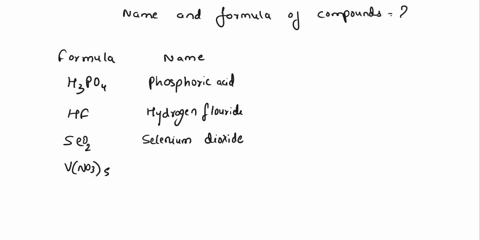 Name and formula of compounds = ?
Formula Name
H3PO4 Phosphoric acid
HF Hydrogen flouride
SeO2 Selenium dioxide
V(NO3)5